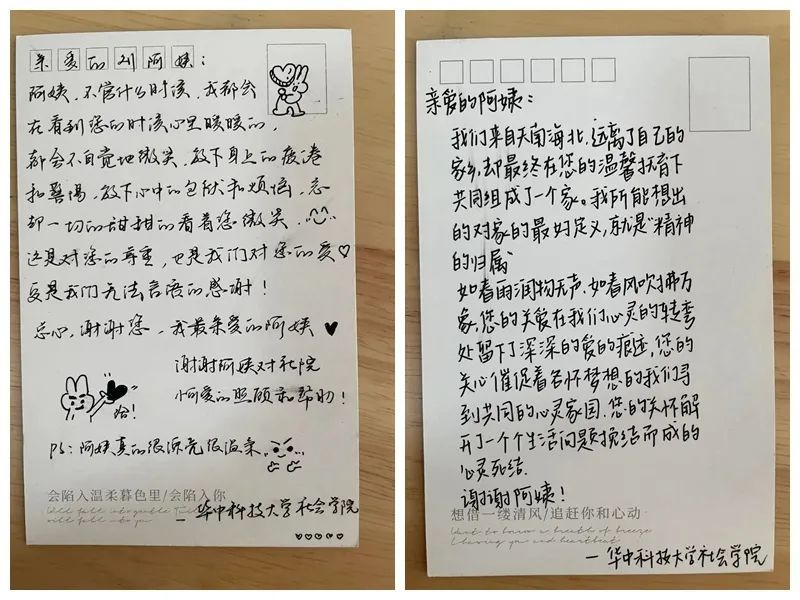 亲爱的刘阿姨：
阿姨，不管什么时候，我都会
在看到您的时候心里暖暖的，
都会不自觉地微笑，放下身上的疲惫
和喜惕，放下心中的包袱和烦恼，忘
却一切的甜甜的看着您微笑，
这是对您的尊重，也是我们对您的爱
更是我们无法言语的感谢！
忘心，谢谢您，我最亲爱的阿姨
谢谢阿姨对社院
可爱的照顾和帮助！
哈！
PS：阿姨真的很漂亮很温柔
会陷入温柔暮色里/会陷入你
一华中科技大学社会学院
亲爱的阿姨：
我们来自天南海北，远离了自己的
家乡，却最终在您的温馨抚育下
共同组成了一个家。我所能想出
的对家的最好定义，就是“精神
的归属”
如春雨润物无声，如春风吹拂万
象，您的关爱在我们心灵的转弯
处留下了深深的爱的痕迹，您的
关心催促着各怀梦想的我们寻
到共同的心灵家园，您的关怀解
开了一个个生活问题挽结而成的
心灵死结.
谢谢阿姨！
想借一缕清风/追赶你和心动
Want to borrow a breath of breeze
一华中科技大学社会学院